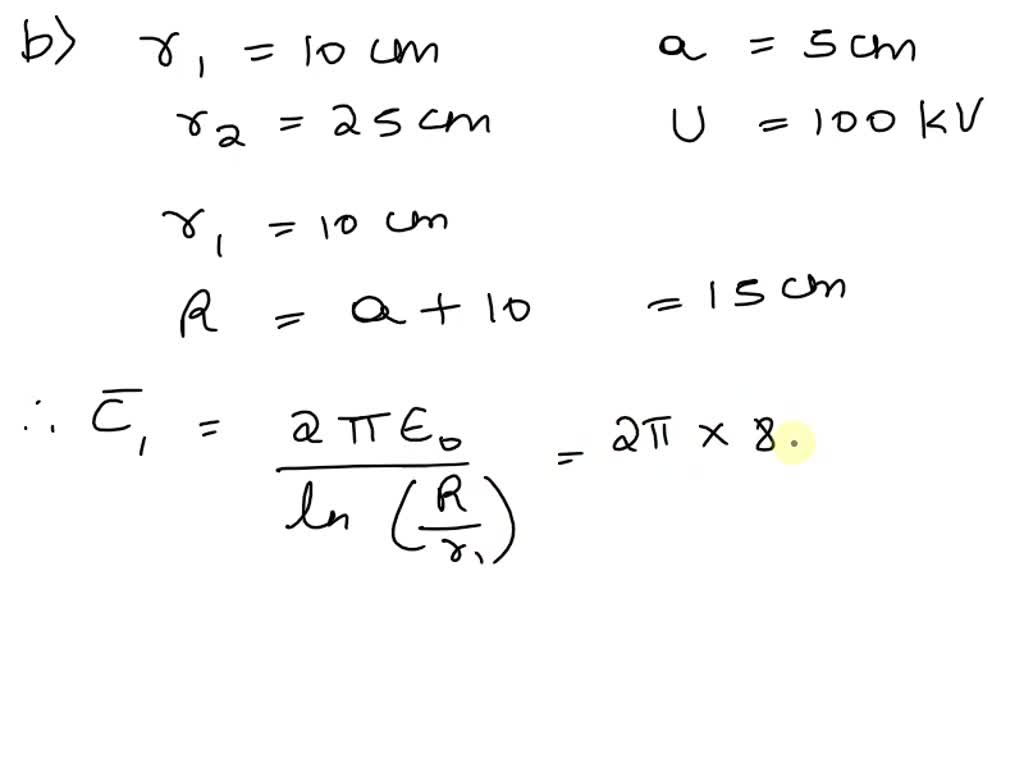 b) r₁ = 10 cm a = 5 cm
r₂ = 25 cm U = 100 kV
r₁ = 10 cm
R = a + 10 = 15 cm
∴ C̅₁ = 2πϵ₀ / ln (R/r₁) = 2π × 8.